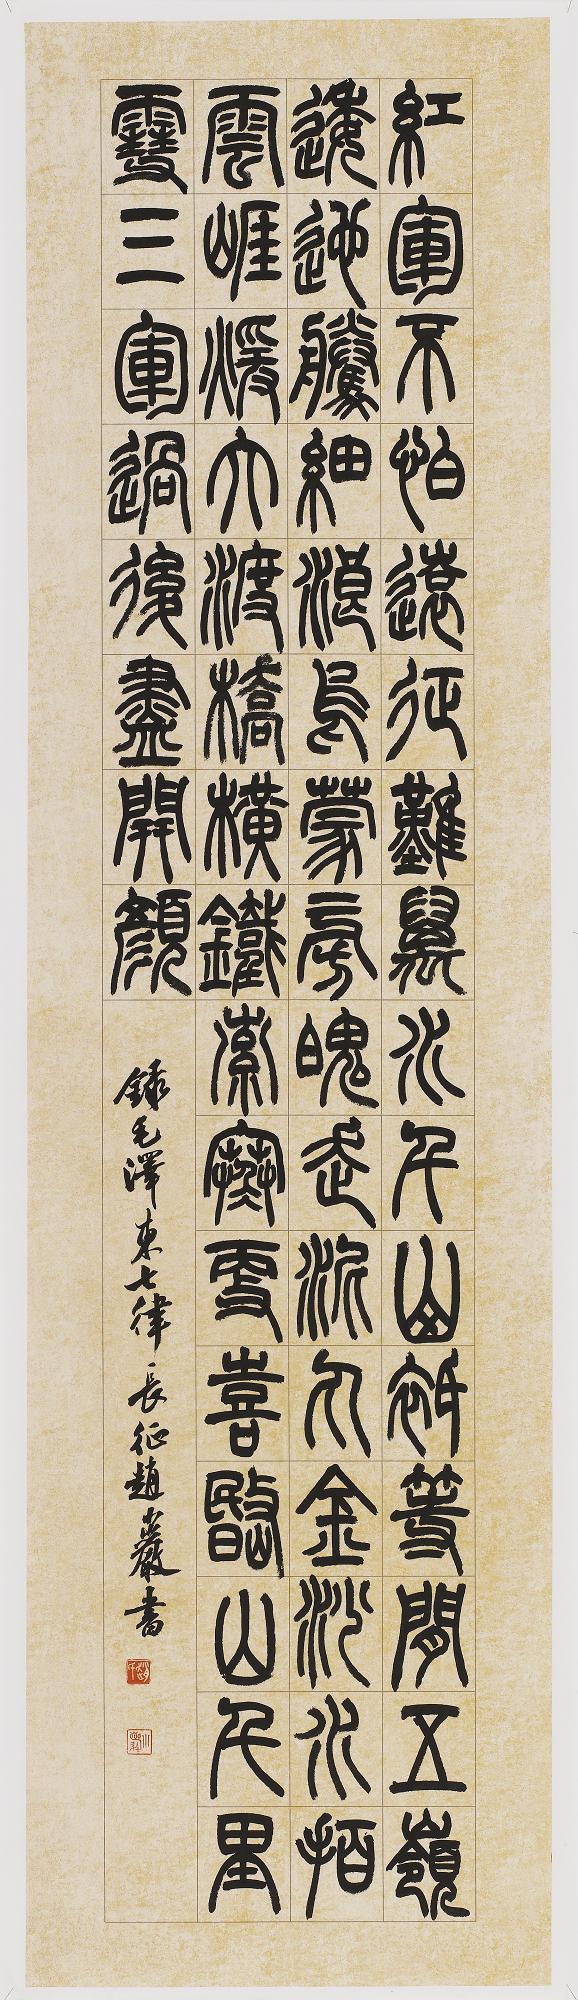 紅軍不怕遠征難萬水千山祗等閒五嶺
逶迤騰細浪烏蒙旁魄走泥丸金沙水拍
雲崕煖大渡橋橫鐵索寒更喜岷山千里
雪三軍過後盡開顏
錄毛澤東七律長征趙巖書